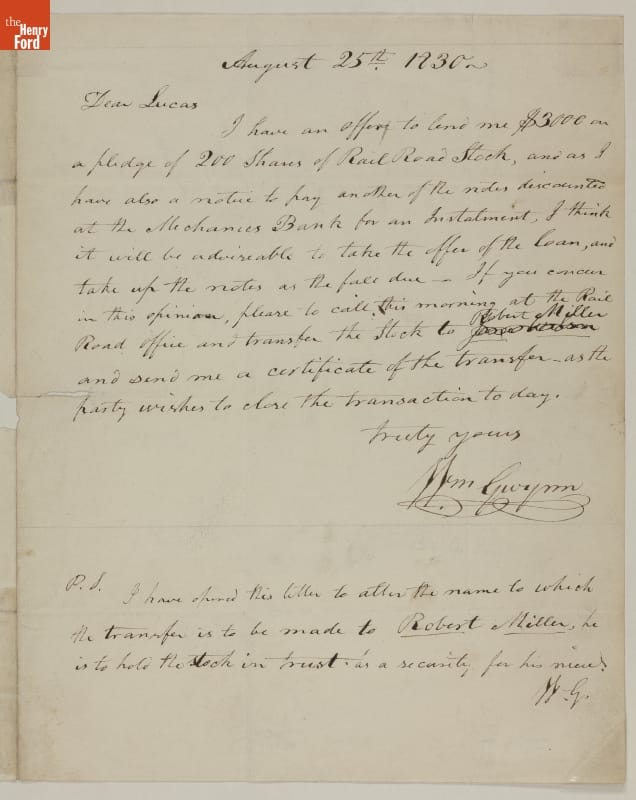 the
Henry
Ford
August 25th 1830
Dear Lucas
I have an offer to lend me $3000 on
a pledge of 200 Shares of Rail Road Stock, and as I
have also a notice to pay another of the notes discounted
at the Mechanics Bank for an Instalment, I think
it will be adviseable to take the offer of the loan, and
take up the notes as the fall due — If you concur
in this opinion, please to call this morning at the Rail
Road Office and transfer the Stock to Robert Miller
and send me a certificate of the transfer – as the
party wishes to close the transaction to day.
truly yours
Wm Gwynn
P. S. I have opened this letter to alter the name to which
the transfer is to be made to Robert Miller, he
is to hold the stock in trust as a security for his niece.
W. G.